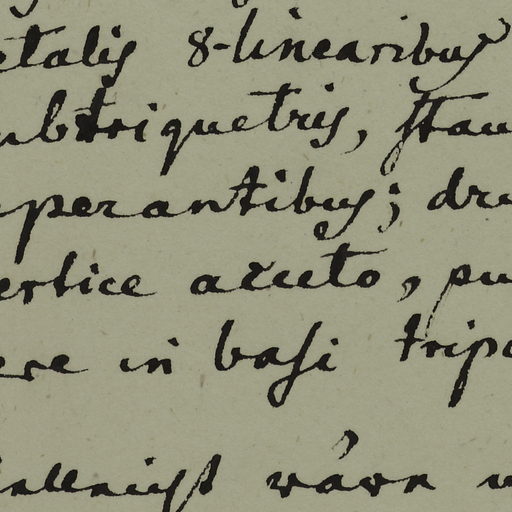 etalis 8-linearibus
ubtriquetris, stau
perantibus; dru
ertice acuto, pu
ere in basi tripa
ielleicht wäre